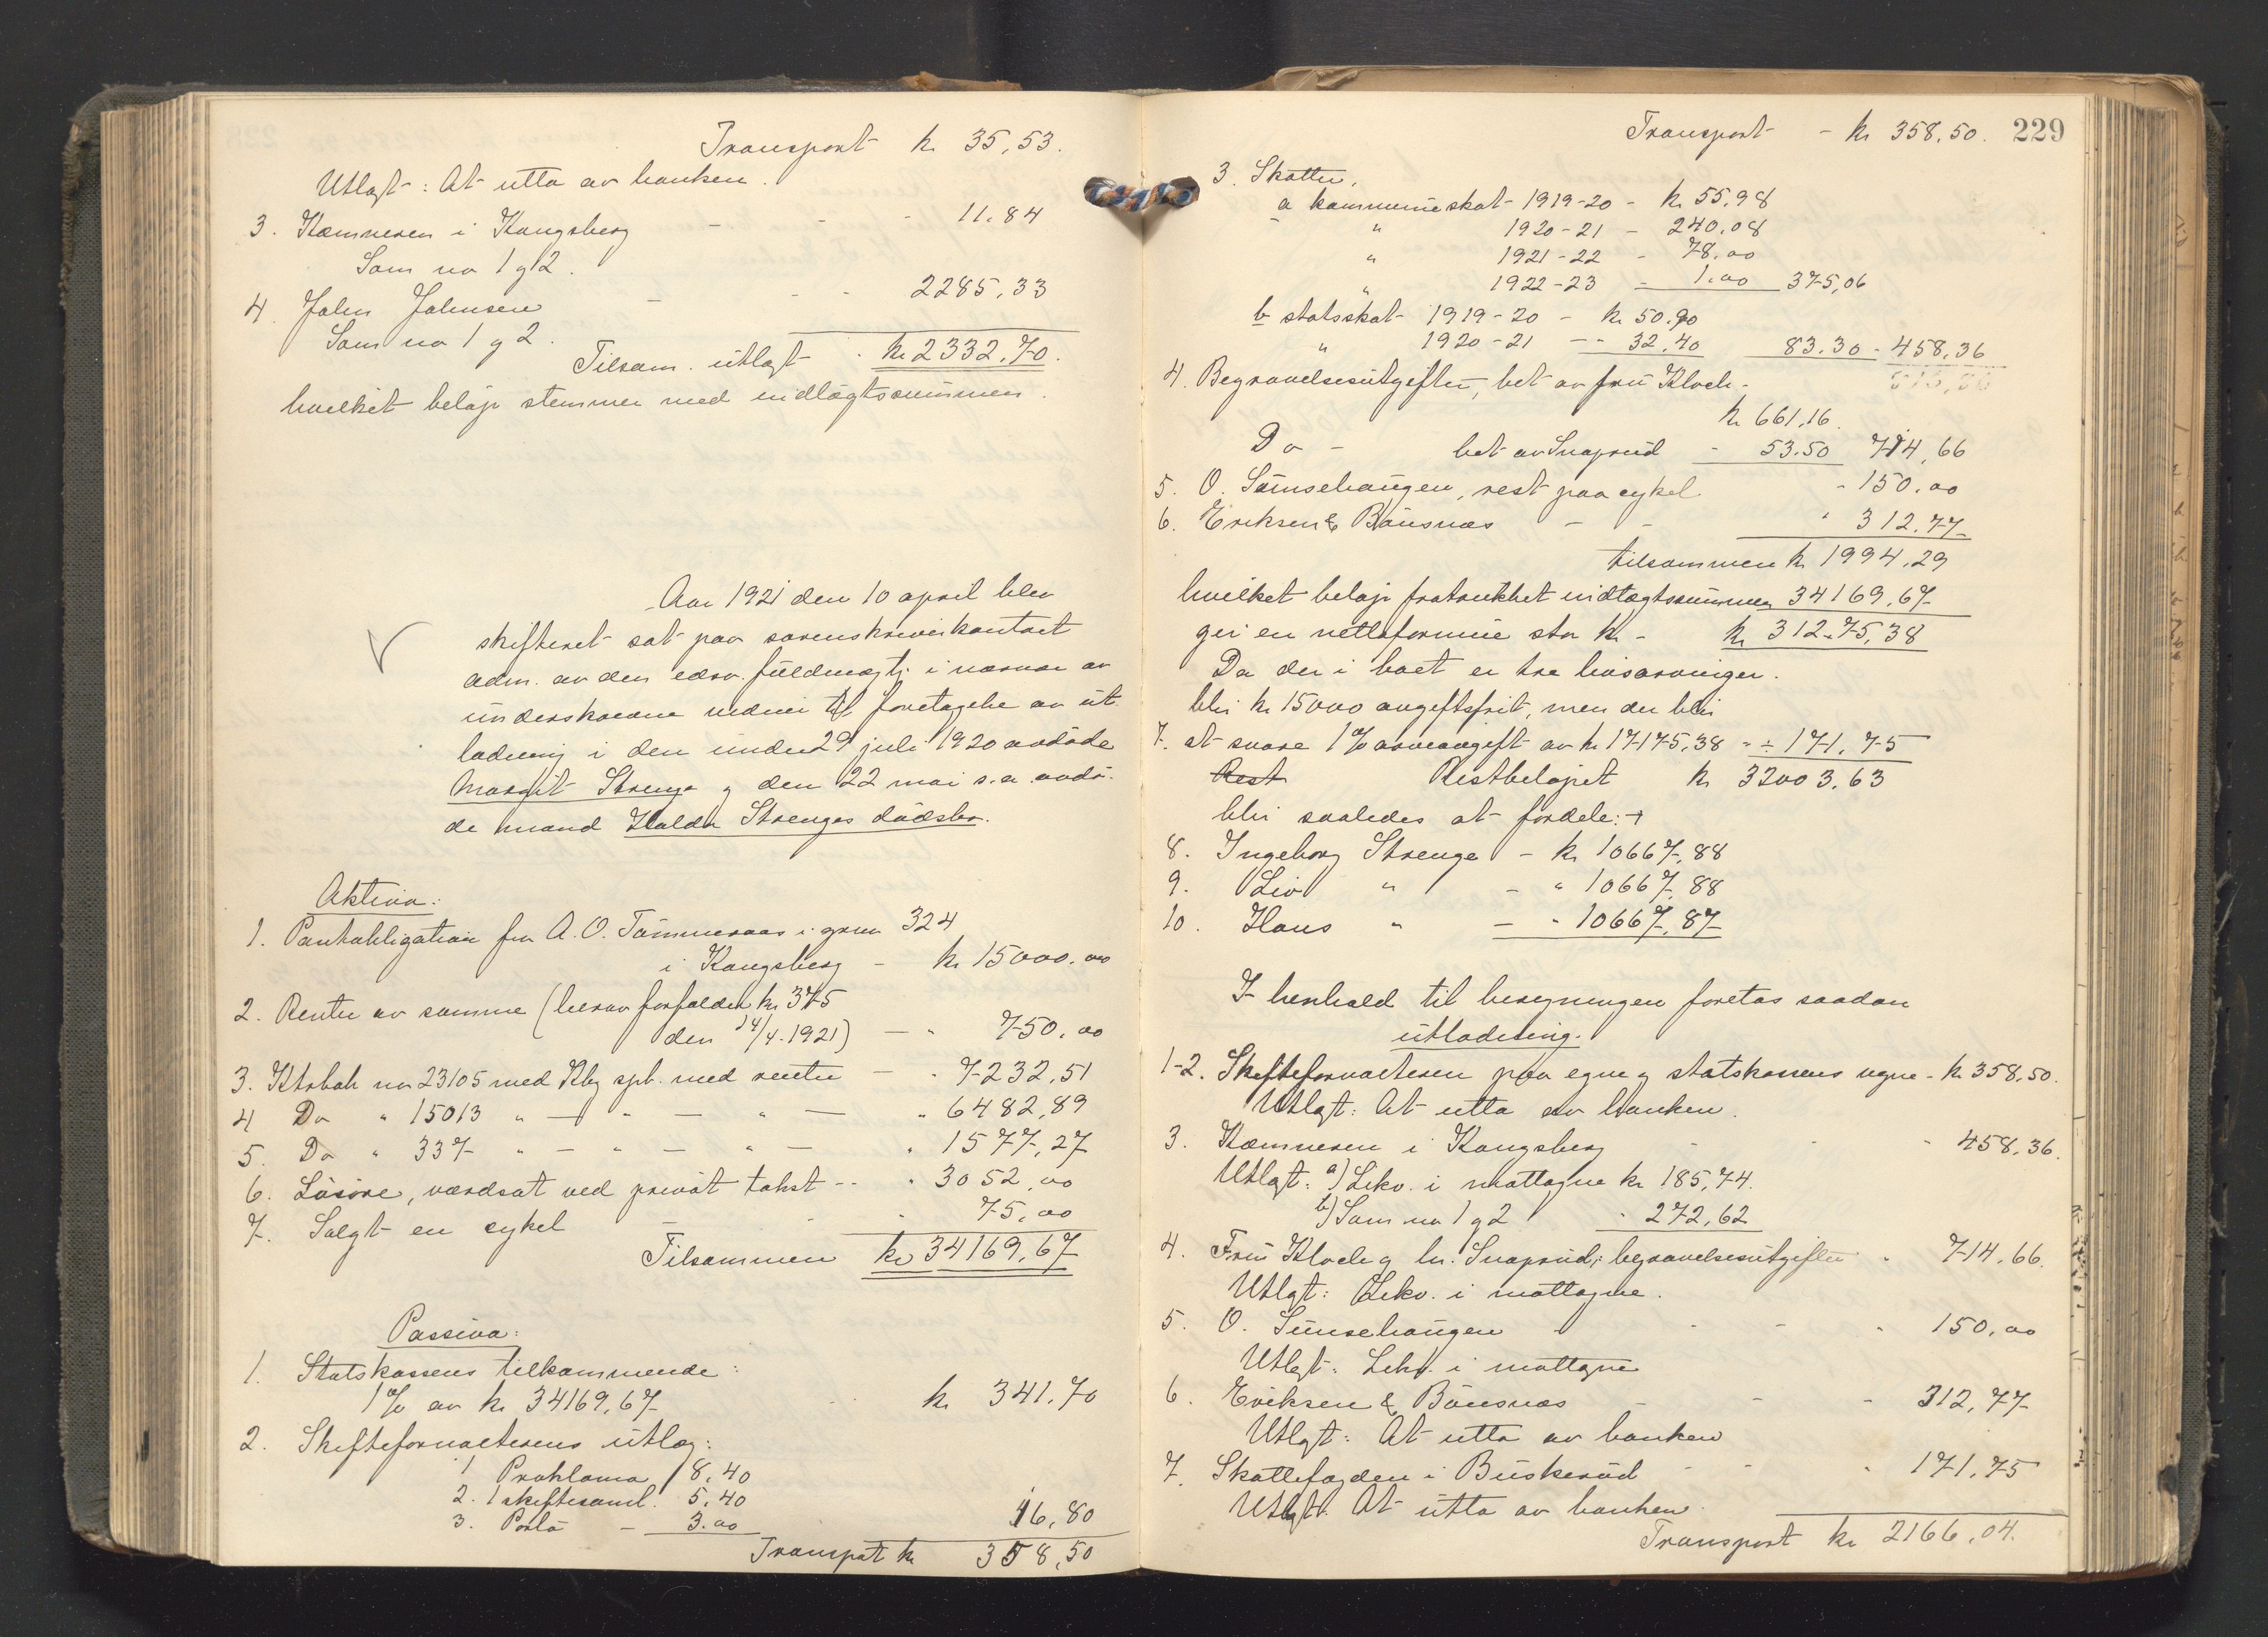 Transport kr 35,53.
Utlagt: At utta av banken.
3. Kæmneren i Kongsberg - - - 11.84
Som no 1 g 2.
4. John Johnsen - - - 2285,33
Som no 1 g 2.
Tilsam. utlagt kr 2332,70.
hvilket beløp stemmer med indtægtssummen.
Aar 1921 den 10 april blev
skifteret sat paa sorenskriverkontoret
adm. av den edsv. fuldmægtig i nærvær av
underskrevne vidner til foretagelse av ut-
lodning i den under 29 juli 1920 avdøde
Margit Strenge g den 22 mai s.a. avdø-
de mand Haldor Strenges dødsbo.
Aktiva:
1. Pantobligation fra A. O. Tømmeraas i grun 324
i Kongsberg - kr 15000.00
2. Renter av samme (herav forfalden kr 375
den 14/4.1921) - " 750,00
3. Ktrbok no 23105 med Kbg spb. med renter - " 7232,51
4 Do " 15013 " - " - " - " 6482,89
5. Do " 337 " - " - " - " 1577,27
6. Løsøre, værdsat ved privat takst - - " 3052,00
7. Solgt en cykel - - " 75,00
Tilsammen kr 34169,67
Passiva:
1. Statskassens tilkommende:
1% av kr 34169,67 kr 341.70
2. Skifteforvalterens utlæg:
1 Proklama 8,40
2. 1 skiftesaml. 5,40
3. Porto - 3.00 16,80
Transport kr 358,50
Transport - kr 358,50. 229
3. Skatter,
a kommuneskat 1919-20 - kr 55,98
" 1920-21 - 240,08
" 1921-22 - 78,00
" 1922-23 - 1.00 375,06
b statsskat 1919-20 - kr 50.90
" 1920-21 - - 32,40 83.30 - 458,36
4. Begravelsesutgifter, bet av fru Kloch -
kr 661,16.
Do - bet av Snaprud - 53.50 714,66
5. O. Sønsehaugen, rest paa cykel - 150.00
6. Eriksen & Bønsnæs - - " 312.77
tilsammen kr 1994,29
hvilket beløp fratrukket indtægtssummen 34169,67
gir en nettoformue stor kr - kr 312.75,38
Da der i boet er tre livsarvinger.
bli kr 15000 avgiftsfrit, men der blir
7. at svare 1% arveavgift av kr 17175,38 - ÷ 171,75
Rest Restbeløpet kr 32003,63
blir saaledes at fordele:
8. Ingeborg Strenge - kr 10667,88
9. Liv " - " 10667,88
10. Hans " - " 10667,87
I henhold til beregningen foretas saadan
utlodning.
1-2. Skifteforvalteren paa egne g statskassens vegne - kr 358,50.
Utlagt: At utta av banken.
3. Kæmneren i Kongsberg - - - 458,36.
Utlagt: a) Likv. i mottagne kr 185,74.
b) Som no 1 g 2 " 272,62
4. Fru Kloch g hr. Snaprud, begravelsesutgifter " 714.66.
Utlagt: Likv. i mottagne.
5. O. Sønsehaugen - - " 150,00
Utlagt: Likv. i mottagne
6 Eriksen & Bønsnæs - - - 312,77
Utlagt: At utta av banken
7. Skattefogden i Buskerud - - " 171,75
Utlagt: At utta av banken.
Transport kr 2166,04.